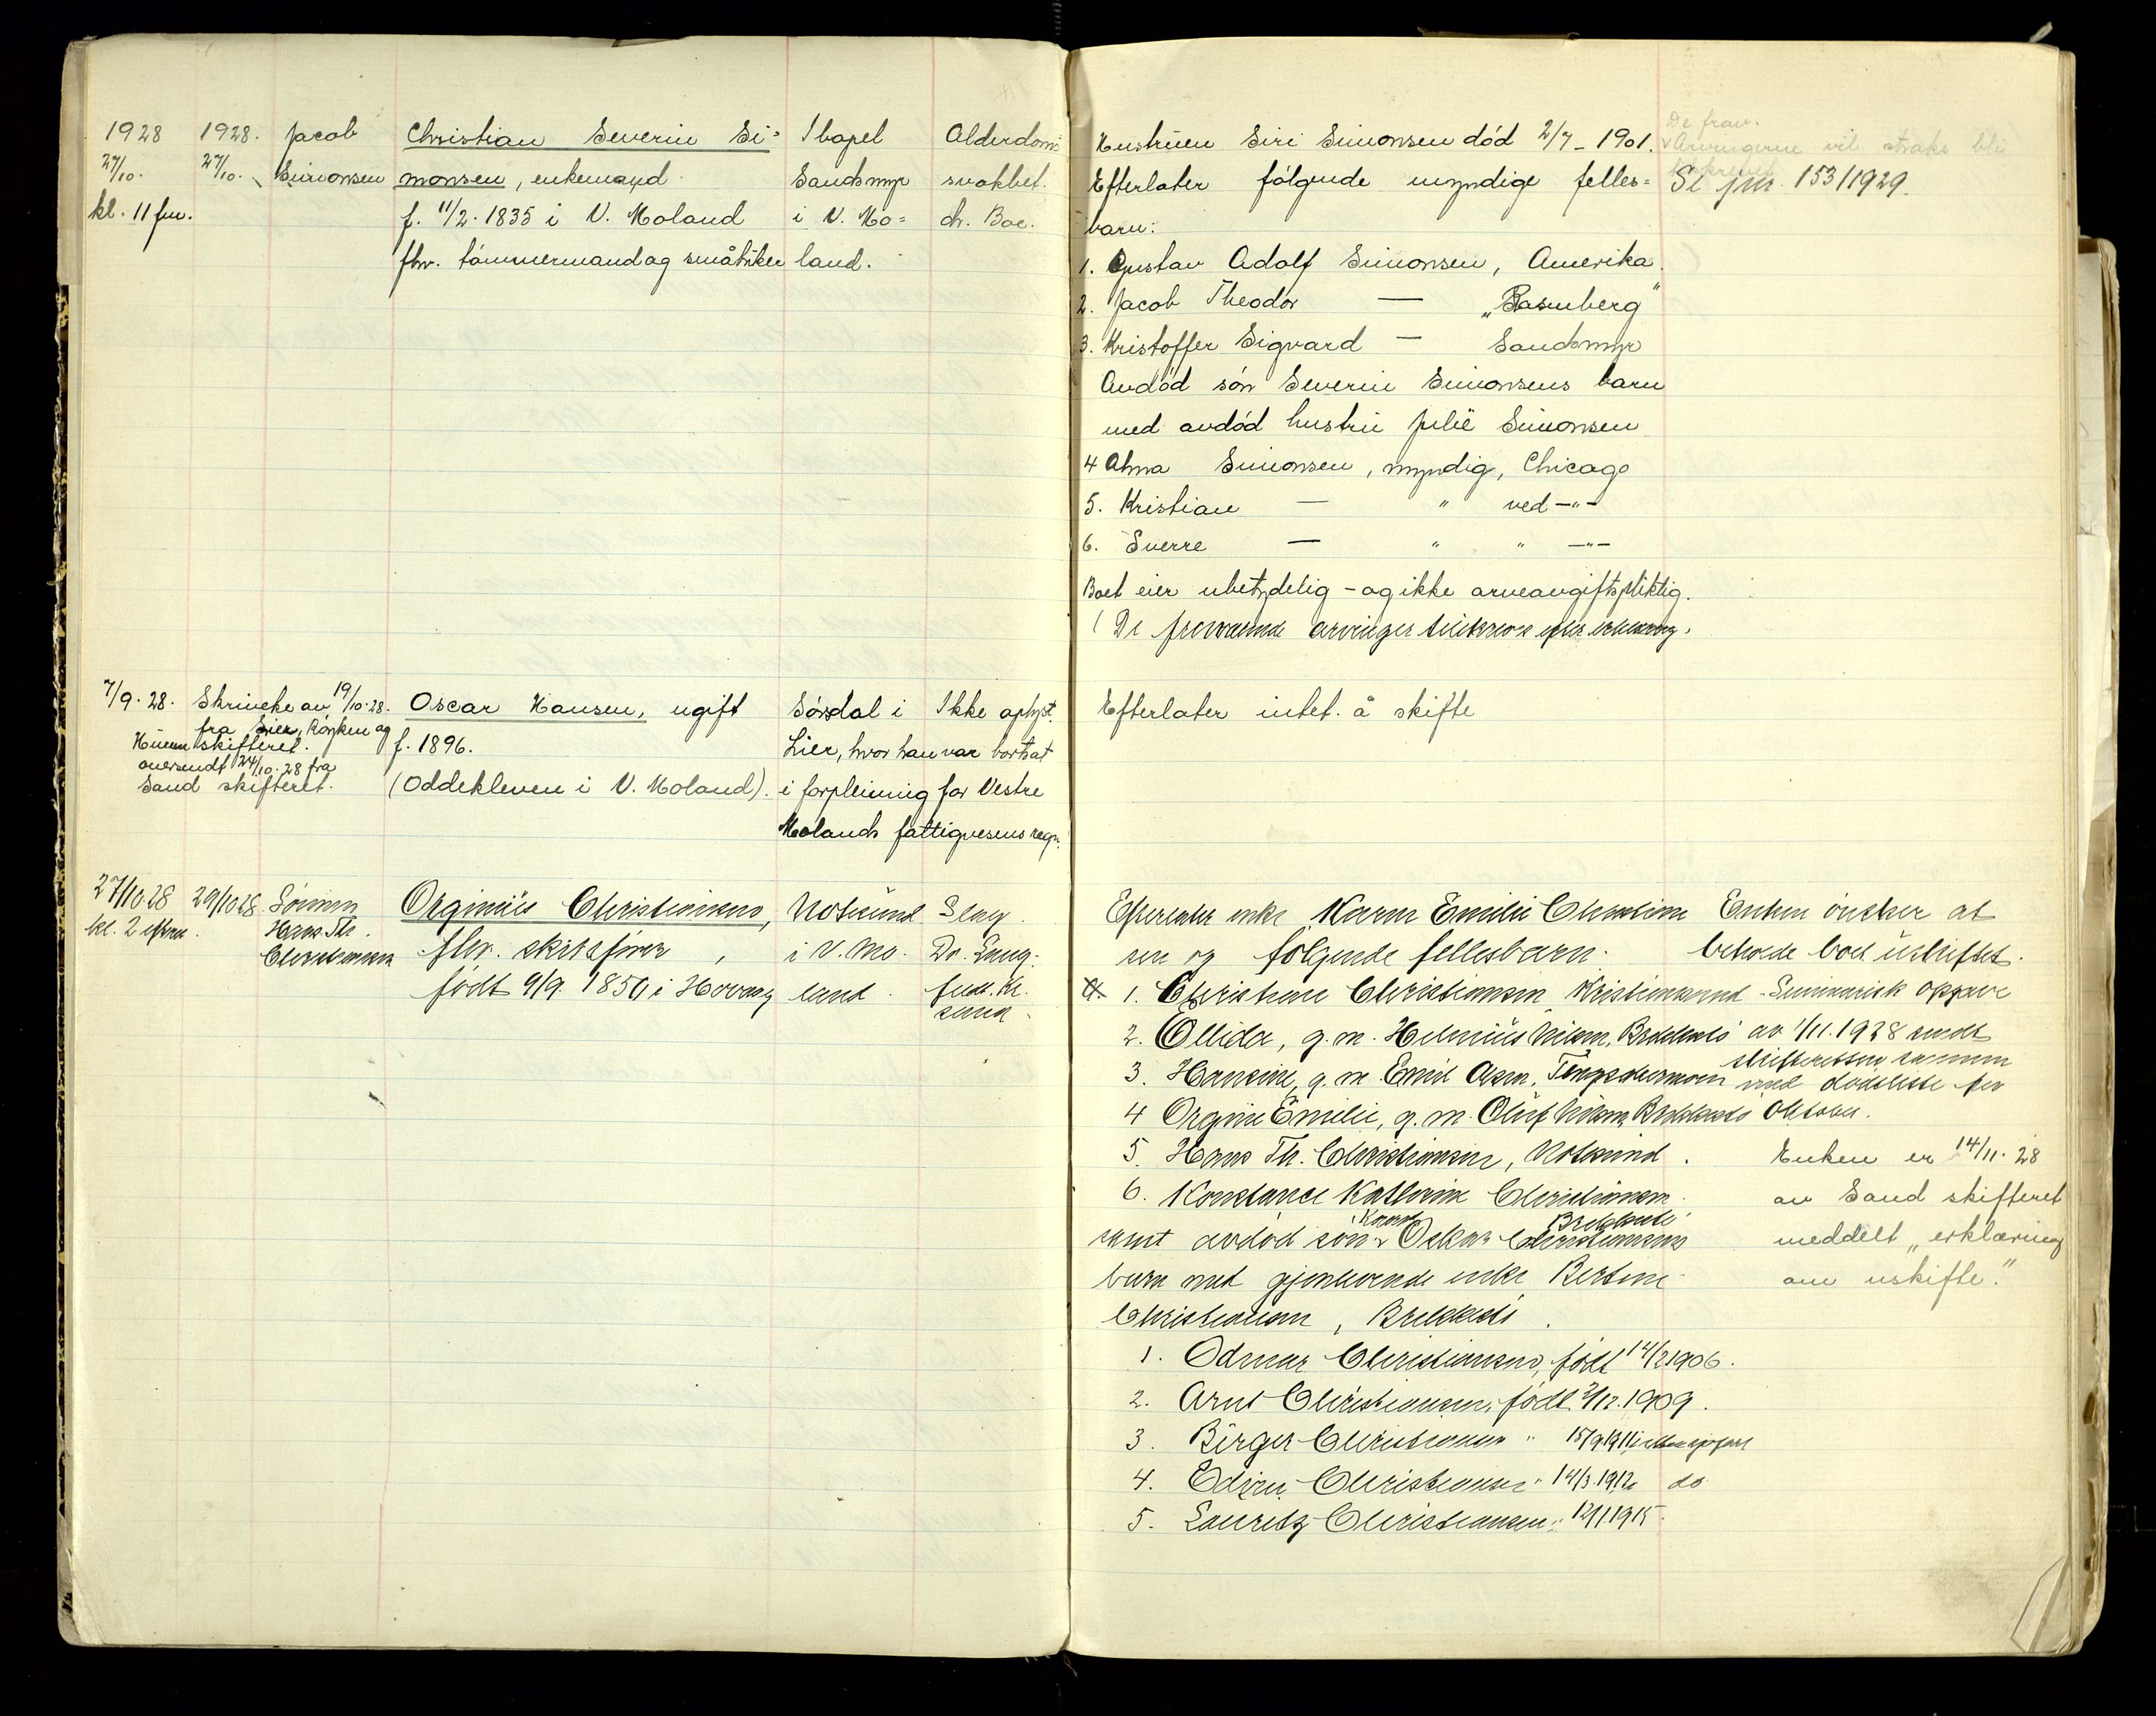 1928 1928. Jacob Christian Severin Si= Ibapel Alderdoms
27/10. 27/10. Simonsen monsen, enkemand Sandsmyr svakhet.
kl. 11 fm. f. 11/2. 1835 i V. Moland i V. Mo= dr. Boe.
fhv. tømmermand og småbruker land.
7/9. 28. Skrivelse av 19/10. 28. Oscar Hansen, ugift Sørdal i Ikke oplyst.
fra Lier, Røyken og
Hurum skifteret. f. 1896. Lier, hvor han var bortsat
oversendt 24/10. 28 fra
Sand skifteret. (Oddekleven i V. Moland). i forpleining for Vestre
Molands fattigvesens regn.
27/10 28 29/10 28. Sønnen Orginius Christiansen, Notsund Slag.
kl. 2 efterm. Hans Th. fhv. skibsfører, i V. Mo- Dr.
Christiansen født 9/9. i Høvaag land.
Hustruen Siri Simonsen død 2/7 - 1901.
Efterlater følgende myndige felles=
barn:
1. Gustav Adolf Simonsen, Amerika.
2. Jacob Theodor — "Rosenberg"
3. Kristoffer Sigvard — Sandsmyr
Avdød søn Severin Simonsens barn
med avdød hustru Julie Simonsen
4 Alma Simonsen, myndig, Chicago
5. Kristian — " ved -"-
6. Sverre — " " -"-
Boet eier ubetydelig - og ikke arveavgiftspliktig.
De arvinger
De frav.
Arvingerne vil straks bli
Se jnr. 153/1929.
Efterlater intet å skifte
Efterlater enke Karen Emilie Christian
sen og følgende fellesbarn.
1. Christiane Christiansen Kristiansand
2. Ellida, g. m. Helmius Nilsen, Brekkestø
3. Hansine, g. m. Emil
4 Orgine Emilie, g. m. Oluf Nilsen, Brekkestø
5. Hans Th. Christiansen, Notsund.
6. Konstance Kathrine Christiansen.
Brekkestø
samt avdød søn Oskar Christiansens
barn med gjenlevende enke Bertine
Christiansen, Brekkestø.
1. Odmar Christiansen, født 14/2 1906.
2. Arnt Christiansen, født 1909.
3. Birger Christiansen " 15/9 1911
4. Christiansen " 14/3. 1912 do
5. Lauritz Christiansen " 12/1 1915.
Enken ønsker at
beholde boet uskiftet.
Summarisk opgave
av 1/11. 1928 sendt
skifteretten sammen
med dødsliste for
Oktober.
Enken er 14/11. 28
av Sand skifteret
meddelt „erklæring
om uskifte."